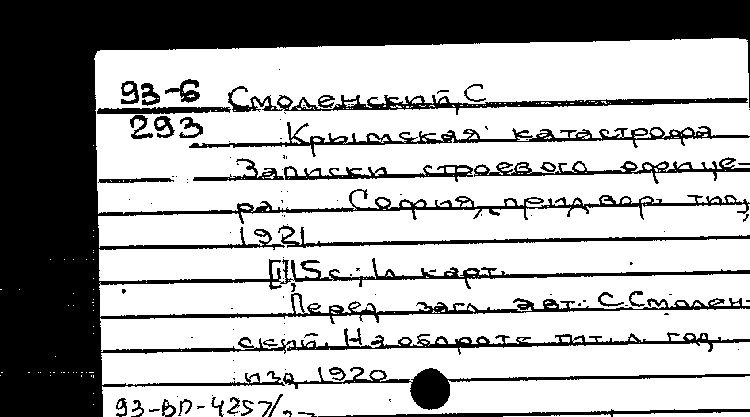 93-6 Смоленский, С
293 Крымская катастрофа
Записки строевого офице-
ра. София, придвор. тип.,
1921
15 с.; 1 л. карт.
Перед загл. авт.: С. Смолен-
ский. На обороте тит. л. год.
изд. 1920
93-ВП-4257/